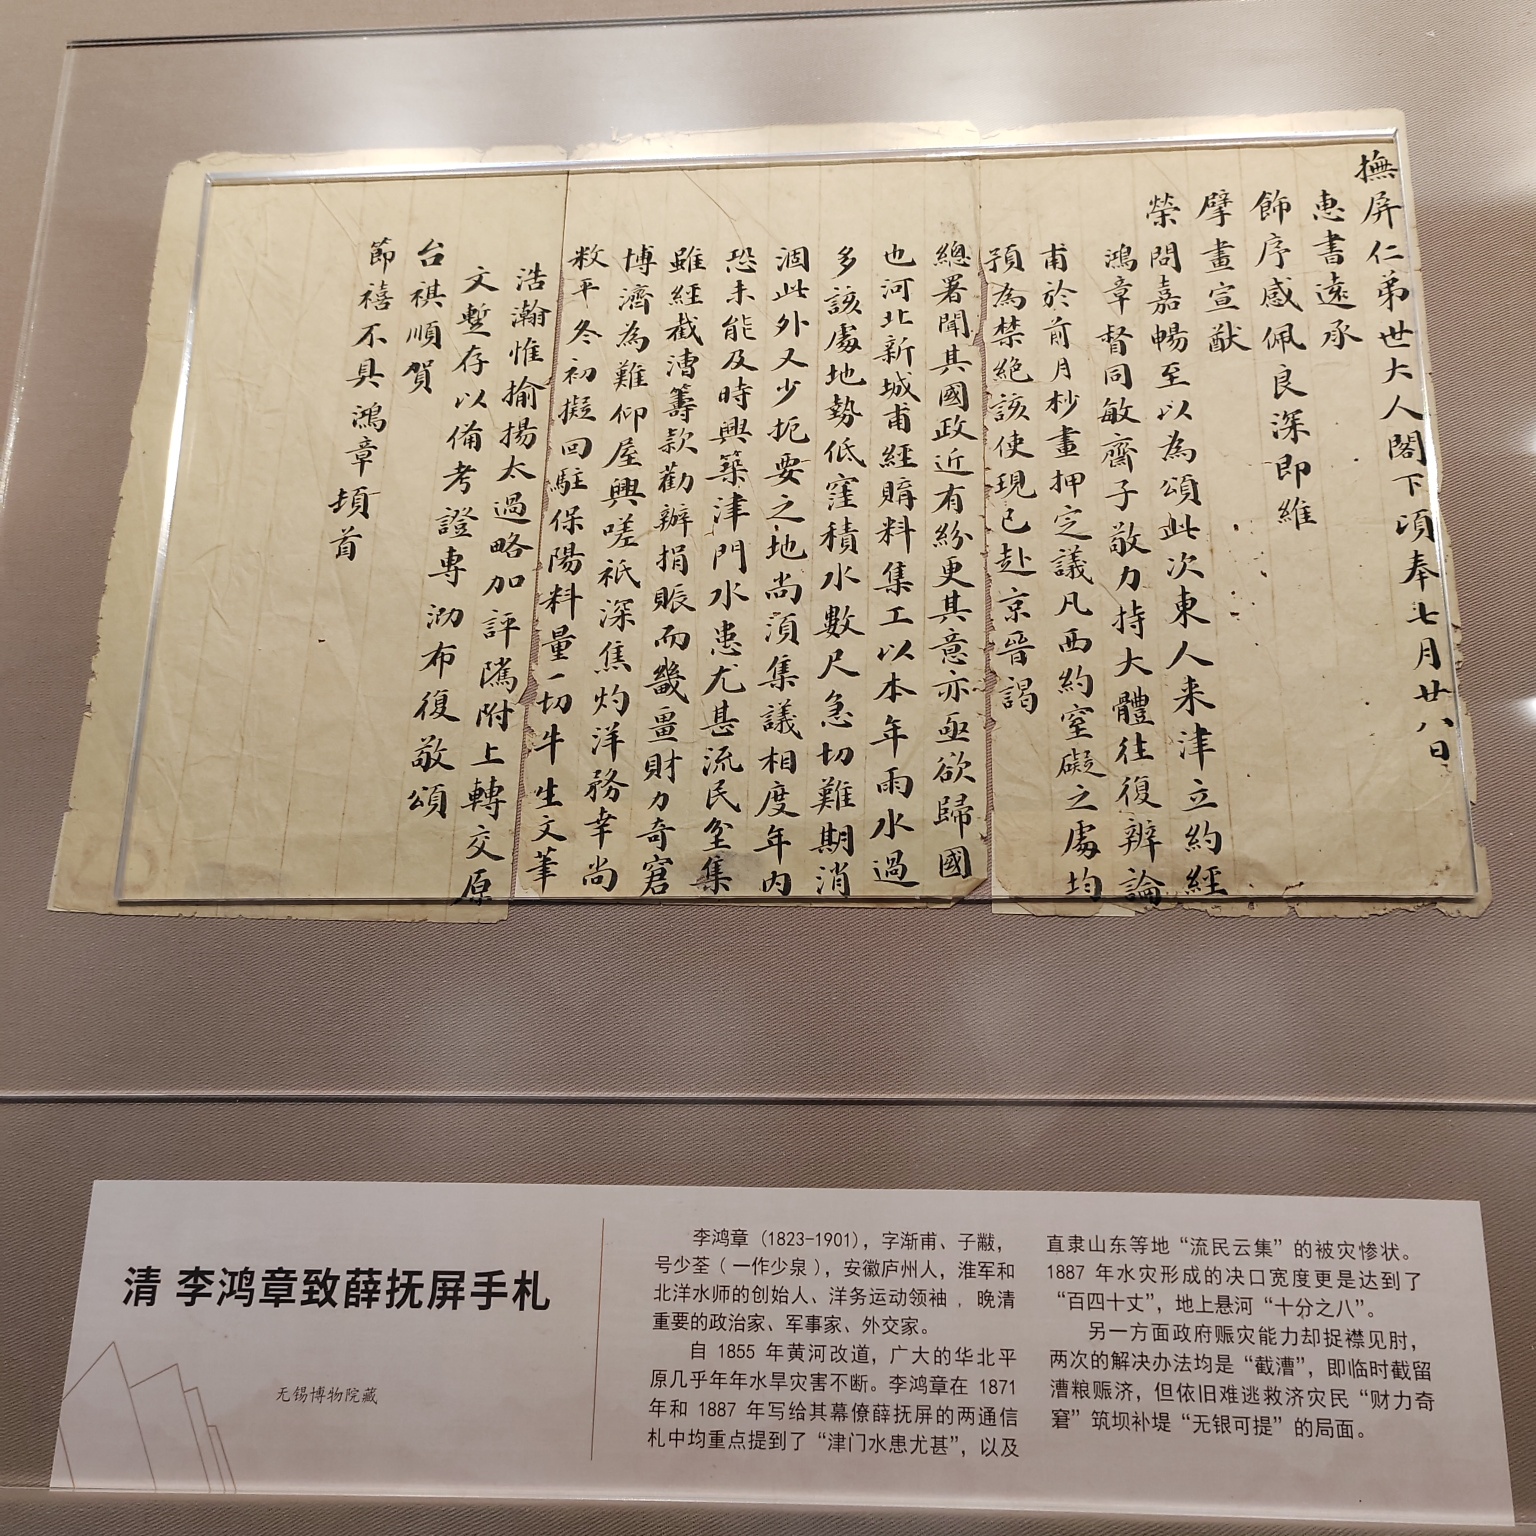 撫屏仁弟世大人閣下頃奉七月廿八日
惠書遠承
飾序感佩良深即維
擘畫宣猷
榮問嘉暢至以為頌此次東人来津立約經
鴻章督同敏齋子敬力持大體往復辨論
甫於前月杪畫押定議凡西約窒礙之處均
預為禁絕該使現已赴京晉謁
總署聞其國政近有紛更其意亦亟欲歸國
也河北新城甫經購料集工以本年雨水過
多該處地勢低窪積水數尺急切難期消
涸此外又少扼要之地尚須集議相度年內
恐未能及時興築津門水患尤甚流民坌集
雖經截漕籌款勸辦捐賑而畿畺財力奇窘
博濟為難仰屋興嗟祇深焦灼洋務幸尚
敉平冬初擬回駐保陽料量一切牛生文筆
浩瀚惟揄揚太過略加評隲附上轉交原
文暫存以備考證專泐布復敬頌
台祺順賀
節禧不具鴻章頓首
清 李鸿章致薛抚屏手札
无锡博物院藏
李鸿章（1823-1901），字渐甫、子黻，
号少荃（一作少泉），安徽庐州人，淮军和
北洋水师的创始人、洋务运动领袖，晚清
重要的政治家、军事家、外交家。
自 1855 年黄河改道，广大的华北平
原几乎年年水旱灾害不断。李鸿章在 1871
年和 1887 年写给其幕僚薛抚屏的两通信
札中均重点提到了“津门水患尤甚”，以及
直隶山东等地“流民云集”的被灾惨状。
1887 年水灾形成的决口宽度更是达到了
“百四十丈”，地上悬河“十分之八”。
另一方面政府赈灾能力却捉襟见肘，
两次的解决办法均是“截漕”，即临时截留
漕粮赈济，但依旧难逃救济灾民“财力奇
窘”筑坝补堤“无银可提”的局面。